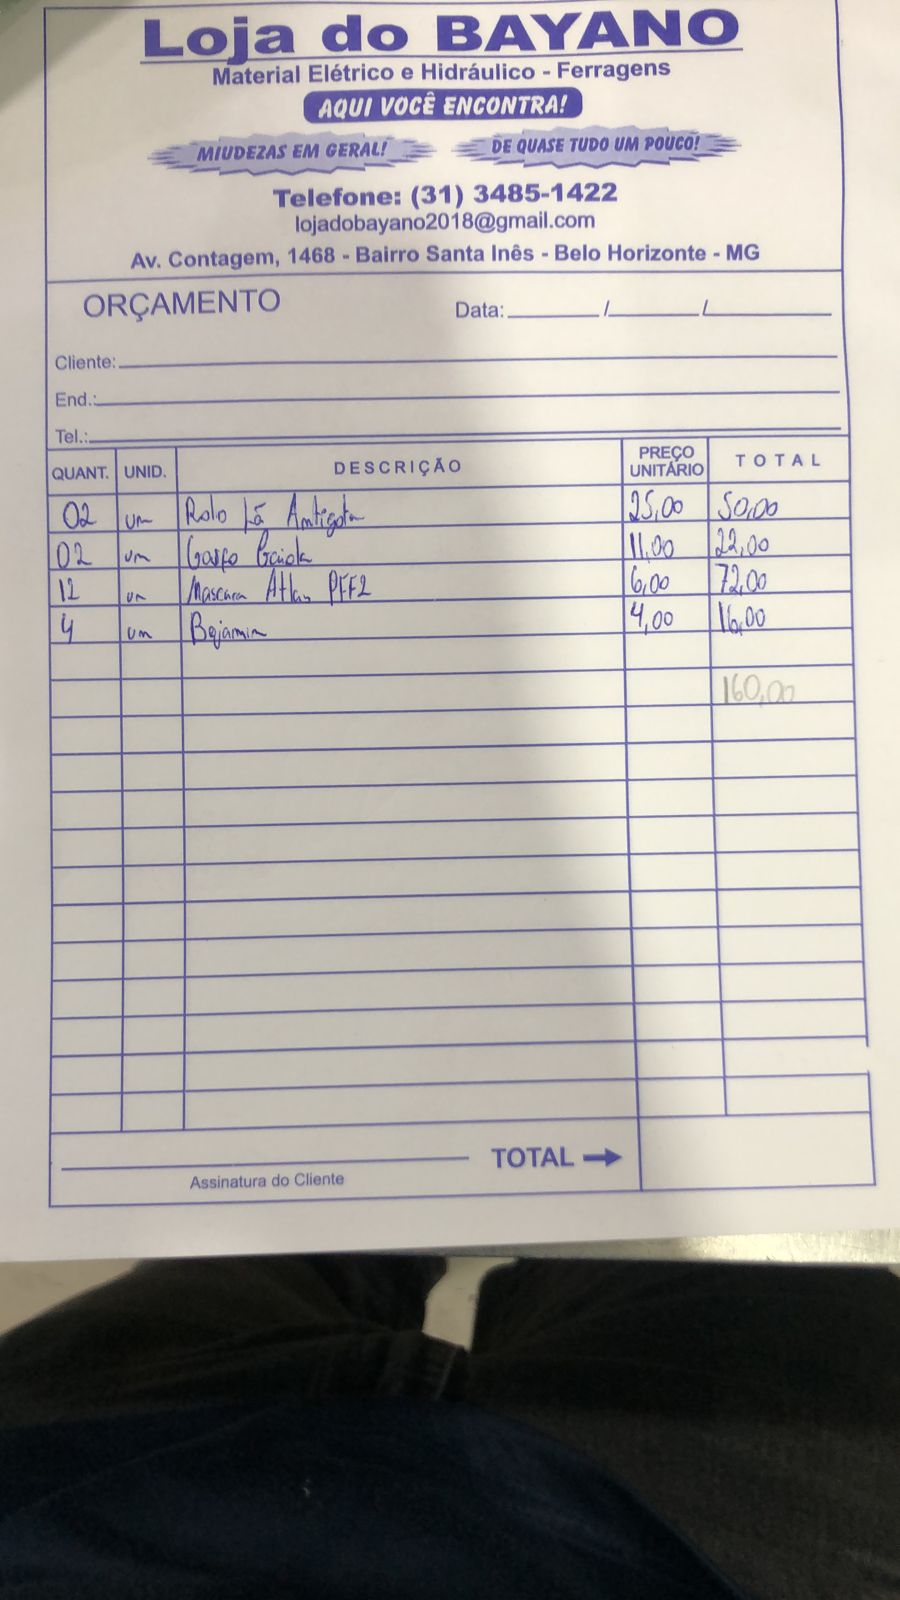 Loja do BAYANO
Material Elétrico e Hidráulico - Ferragens
AQUI VOCÊ ENCONTRA!
MIUDEZAS EM GERAL! DE QUASE TUDO UM POUCO!
Telefone: (31) 3485-1422
lojadobayano2018@gmail.com
Av. Contagem, 1468 - Bairro Santa Inês - Belo Horizonte - MG
ORÇAMENTO Data: / /
Cliente:
End.:
Tel.:
QUANT. UNID. DESCRIÇÃO PREÇO UNITÁRIO TOTAL
02 un Rolo Lã Antigota 25,00 50,00
02 un Garfo Gaiola 11,00 22,00
12 un Mascara Atlas PFF2 6,00 72,00
4 um Bejamin 4,00 16,00
160,00
TOTAL
Assinatura do Cliente